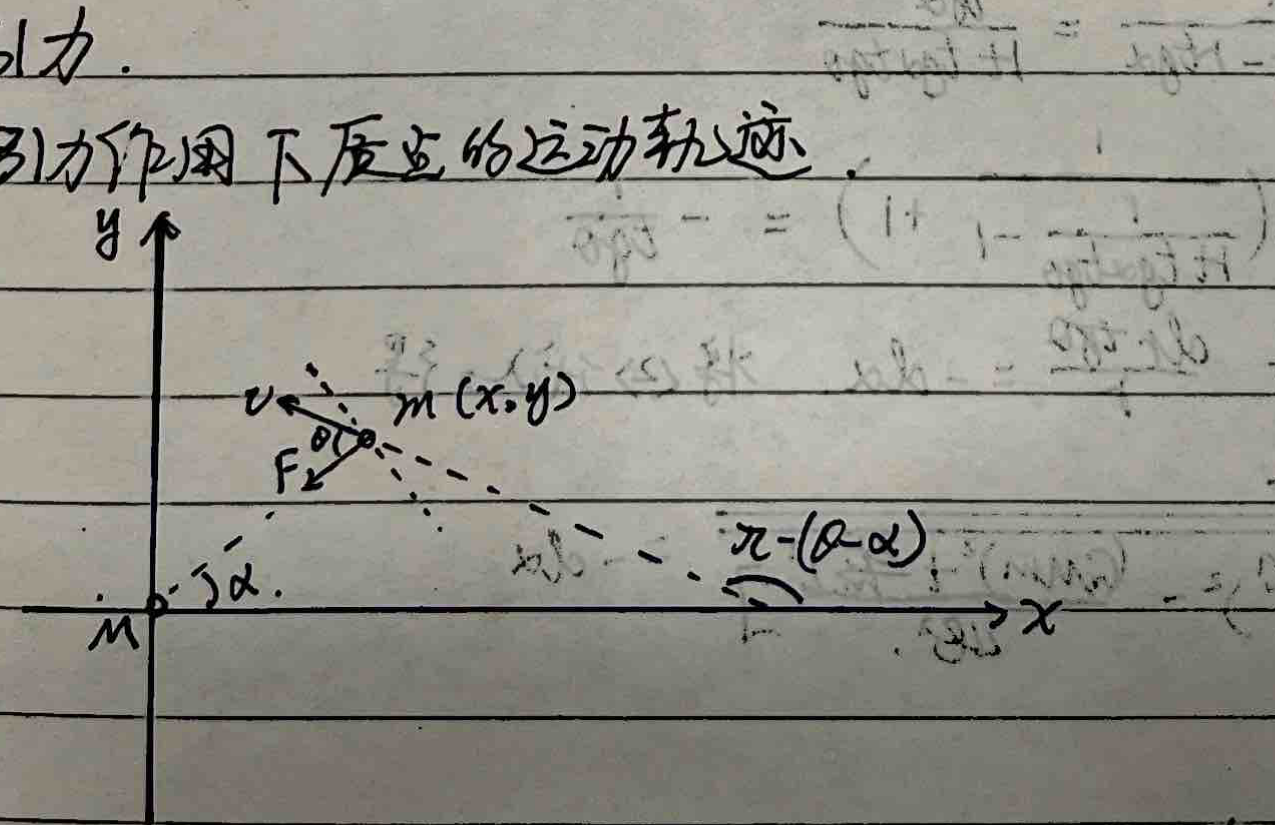 引力.
引力作用下质点的运动轨迹.
y
v
m(x,y)
θ
F
π-(θ-α)
α.
M
x